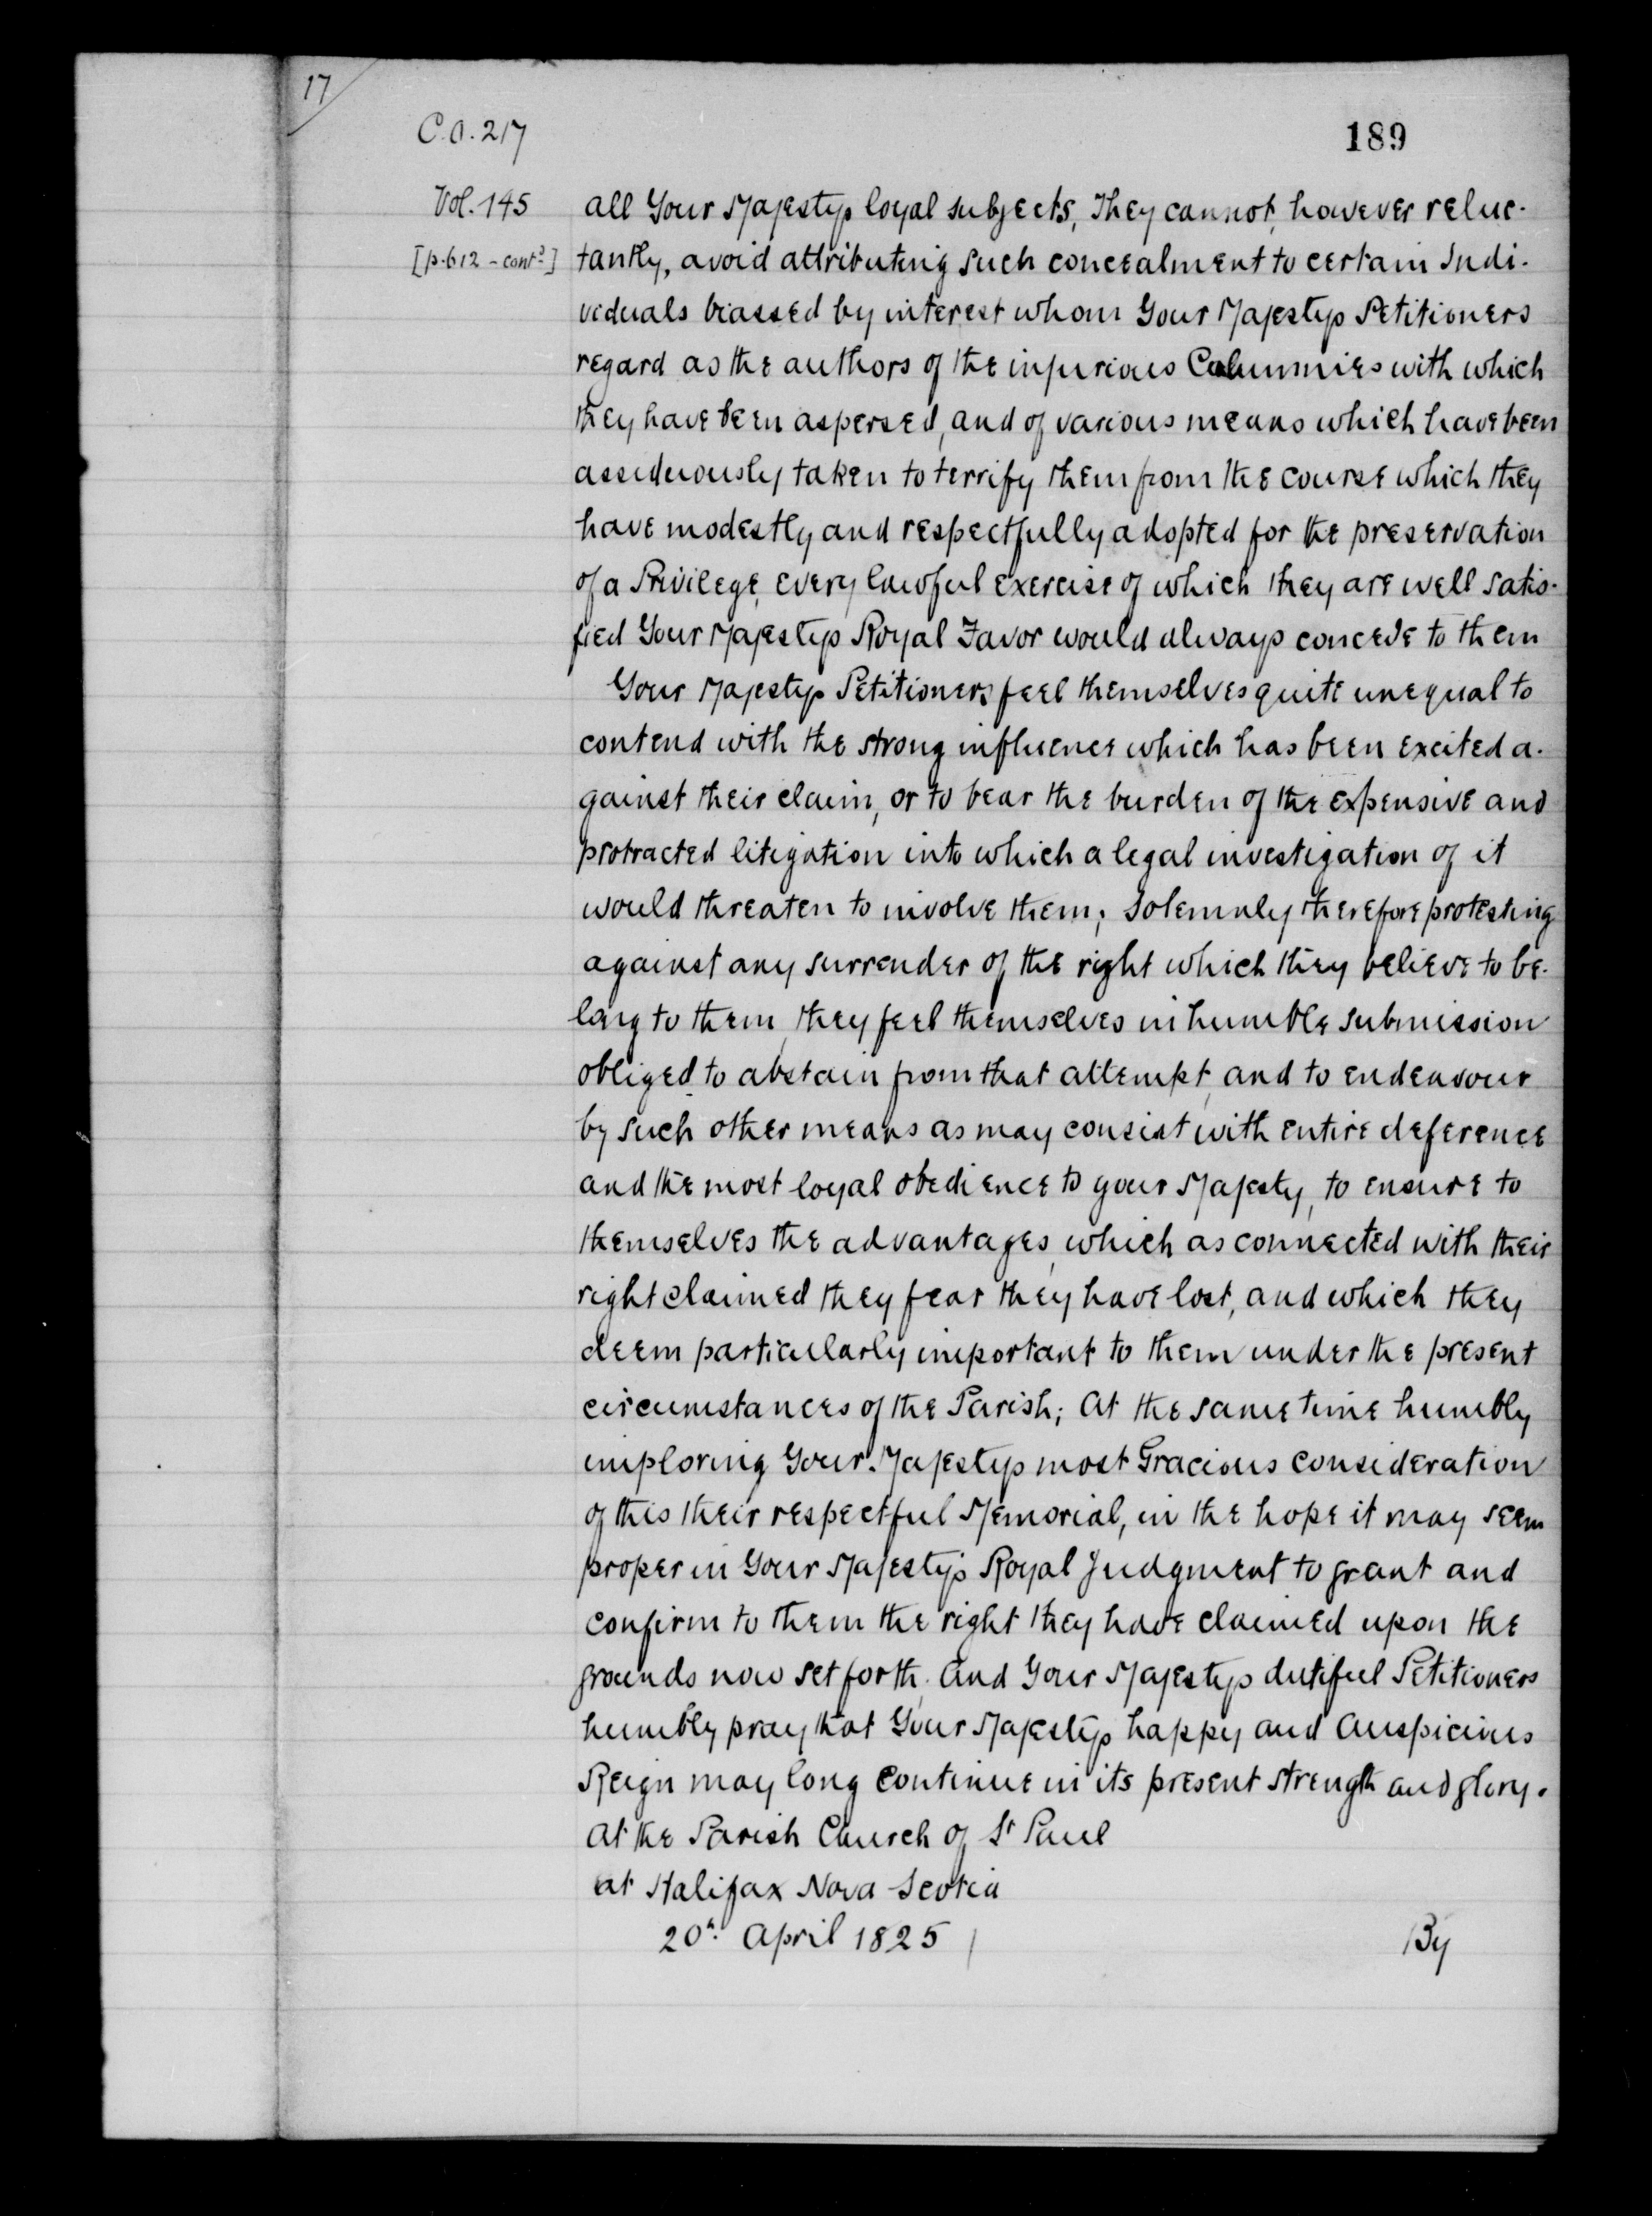 17
C.O. 217
189
Vol. 145
[p. 612 - contd]
all Your Majestys loyal subjects, They cannot, however reluc-
tantly, avoid attributing such concealment to certain Indi-
viduals biassed by interest whom Your Majestys Petitioners
regard as the authors of the injurious Calumnies with which
they have been aspersed, and of various means which have been
assiduously taken to terrify them from the course which they
have modestly and respectfully adopted for the preservation
of a Privilege, every lawful exercise of which they are well satis-
fied Your Majestys Royal Favor would always concede to them
Your Majestys Petitioners feel themselves quite unequal to
contend with the strong influence which has been excited a-
gainst their claim, or to bear the burden of the expensive and
protracted litigation into which a legal investigation of it
would threaten to involve them; Solemnly therefore protesting
against any surrender of the right which they believe to be-
long to them, they feel themselves in humble submission
obliged to abstain from that attempt, and to endeavour
by such other means as may consist with entire deference
and the most loyal obedience to your Majesty, to ensure to
themselves the advantages, which as connected with their
right claimed they fear they have lost, and which they
deem particularly important to them under the present
circumstances of the Parish; At the same time humbly
imploring Your Majestys most Gracious consideration
of this their respectful Memorial, in the hope it may seem
proper in Your Majesty's Royal Judgment to grant and
confirm to them the right they have claimed upon the
grounds now set forth; And Your Majestys dutiful Petitioners
humbly pray that Your Majestys happy and Auspicious
Reign may long continue in its present strength and glory.
At the Parish Church of St Paul
at Halifax Nova Scotia
20h. April 1825
By